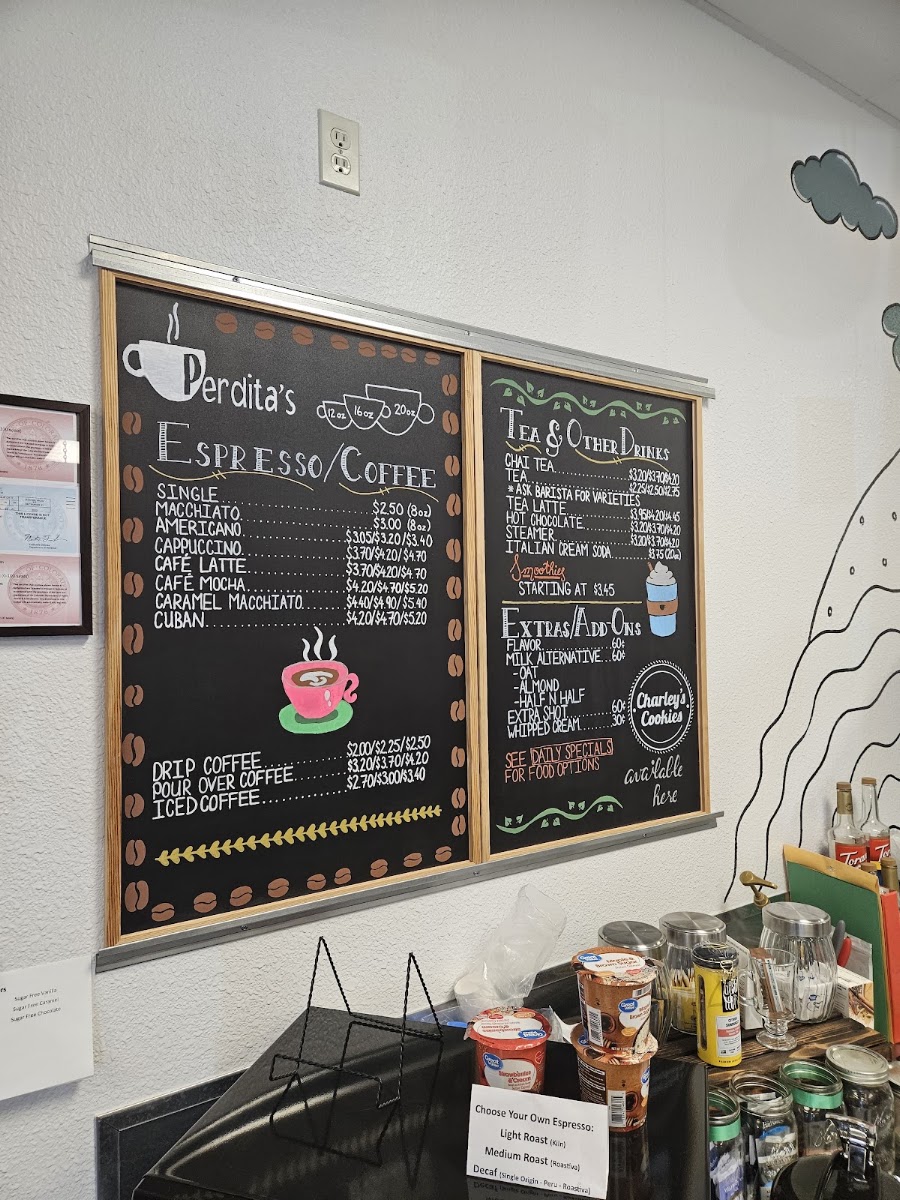 Perdita's
12 oz 16 oz 20 oz
ESPRESSO/COFFEE
SINGLE.......... $2.50 (8oz)
MACCHIATO.......... $3.00 (8oz)
AMERICANO.......... $3.05/$3.20/$3.40
CAPPUCCINO.......... $3.70/$4.20/$4.70
CAFÉ LATTE.......... $3.70/$4.20/$4.70
CAFÉ MOCHA.......... $4.20/$4.70/$5.20
CARAMEL MACCHIATO.......... $4.40/$4.90/$5.40
CUBAN.......... $4.20/$4.70/$5.20
DRIP COFFEE.......... $2.00/$2.25/$2.50
POUR OVER COFFEE.......... $3.20/$3.70/$4.20
ICED COFFEE.......... $2.70/$3.00/$3.40
TEA & OTHER DRINKS
CHAI TEA.......... $3.20/$3.70/$4.20
TEA.......... $2.25/$2.50/$2.75
*ASK BARISTA FOR VARIETIES
TEA LATTE.......... $3.95/$4.20/$4.45
HOT CHOCOLATE.......... $3.20/$3.70/$4.20
STEAMER.......... $3.20/$3.70/$4.20
ITALIAN CREAM SODA.......... $3.75 (20oz)
Smoothies
STARTING AT $3.45
EXTRAS/ADD-ONS
FLAVOR.......... 60¢
MILK ALTERNATIVE... 60¢
-OAT
-ALMOND
-HALF N HALF
EXTRA SHOT.......... 60¢
WHIPPED CREAM.......... 30¢
SEE DAILY SPECIALS
FOR FOOD OPTIONS
Charley's
Cookies
available
here
Sugar Free Vanilla
Sugar Free Caramel
Sugar Free Chocolate
Great Value
Great Value
Choose Your Own Espresso:
Light Roast (Kiln)
Medium Roast (Roastiva)
Decaf (Single Origin - Peru - Roastiva)